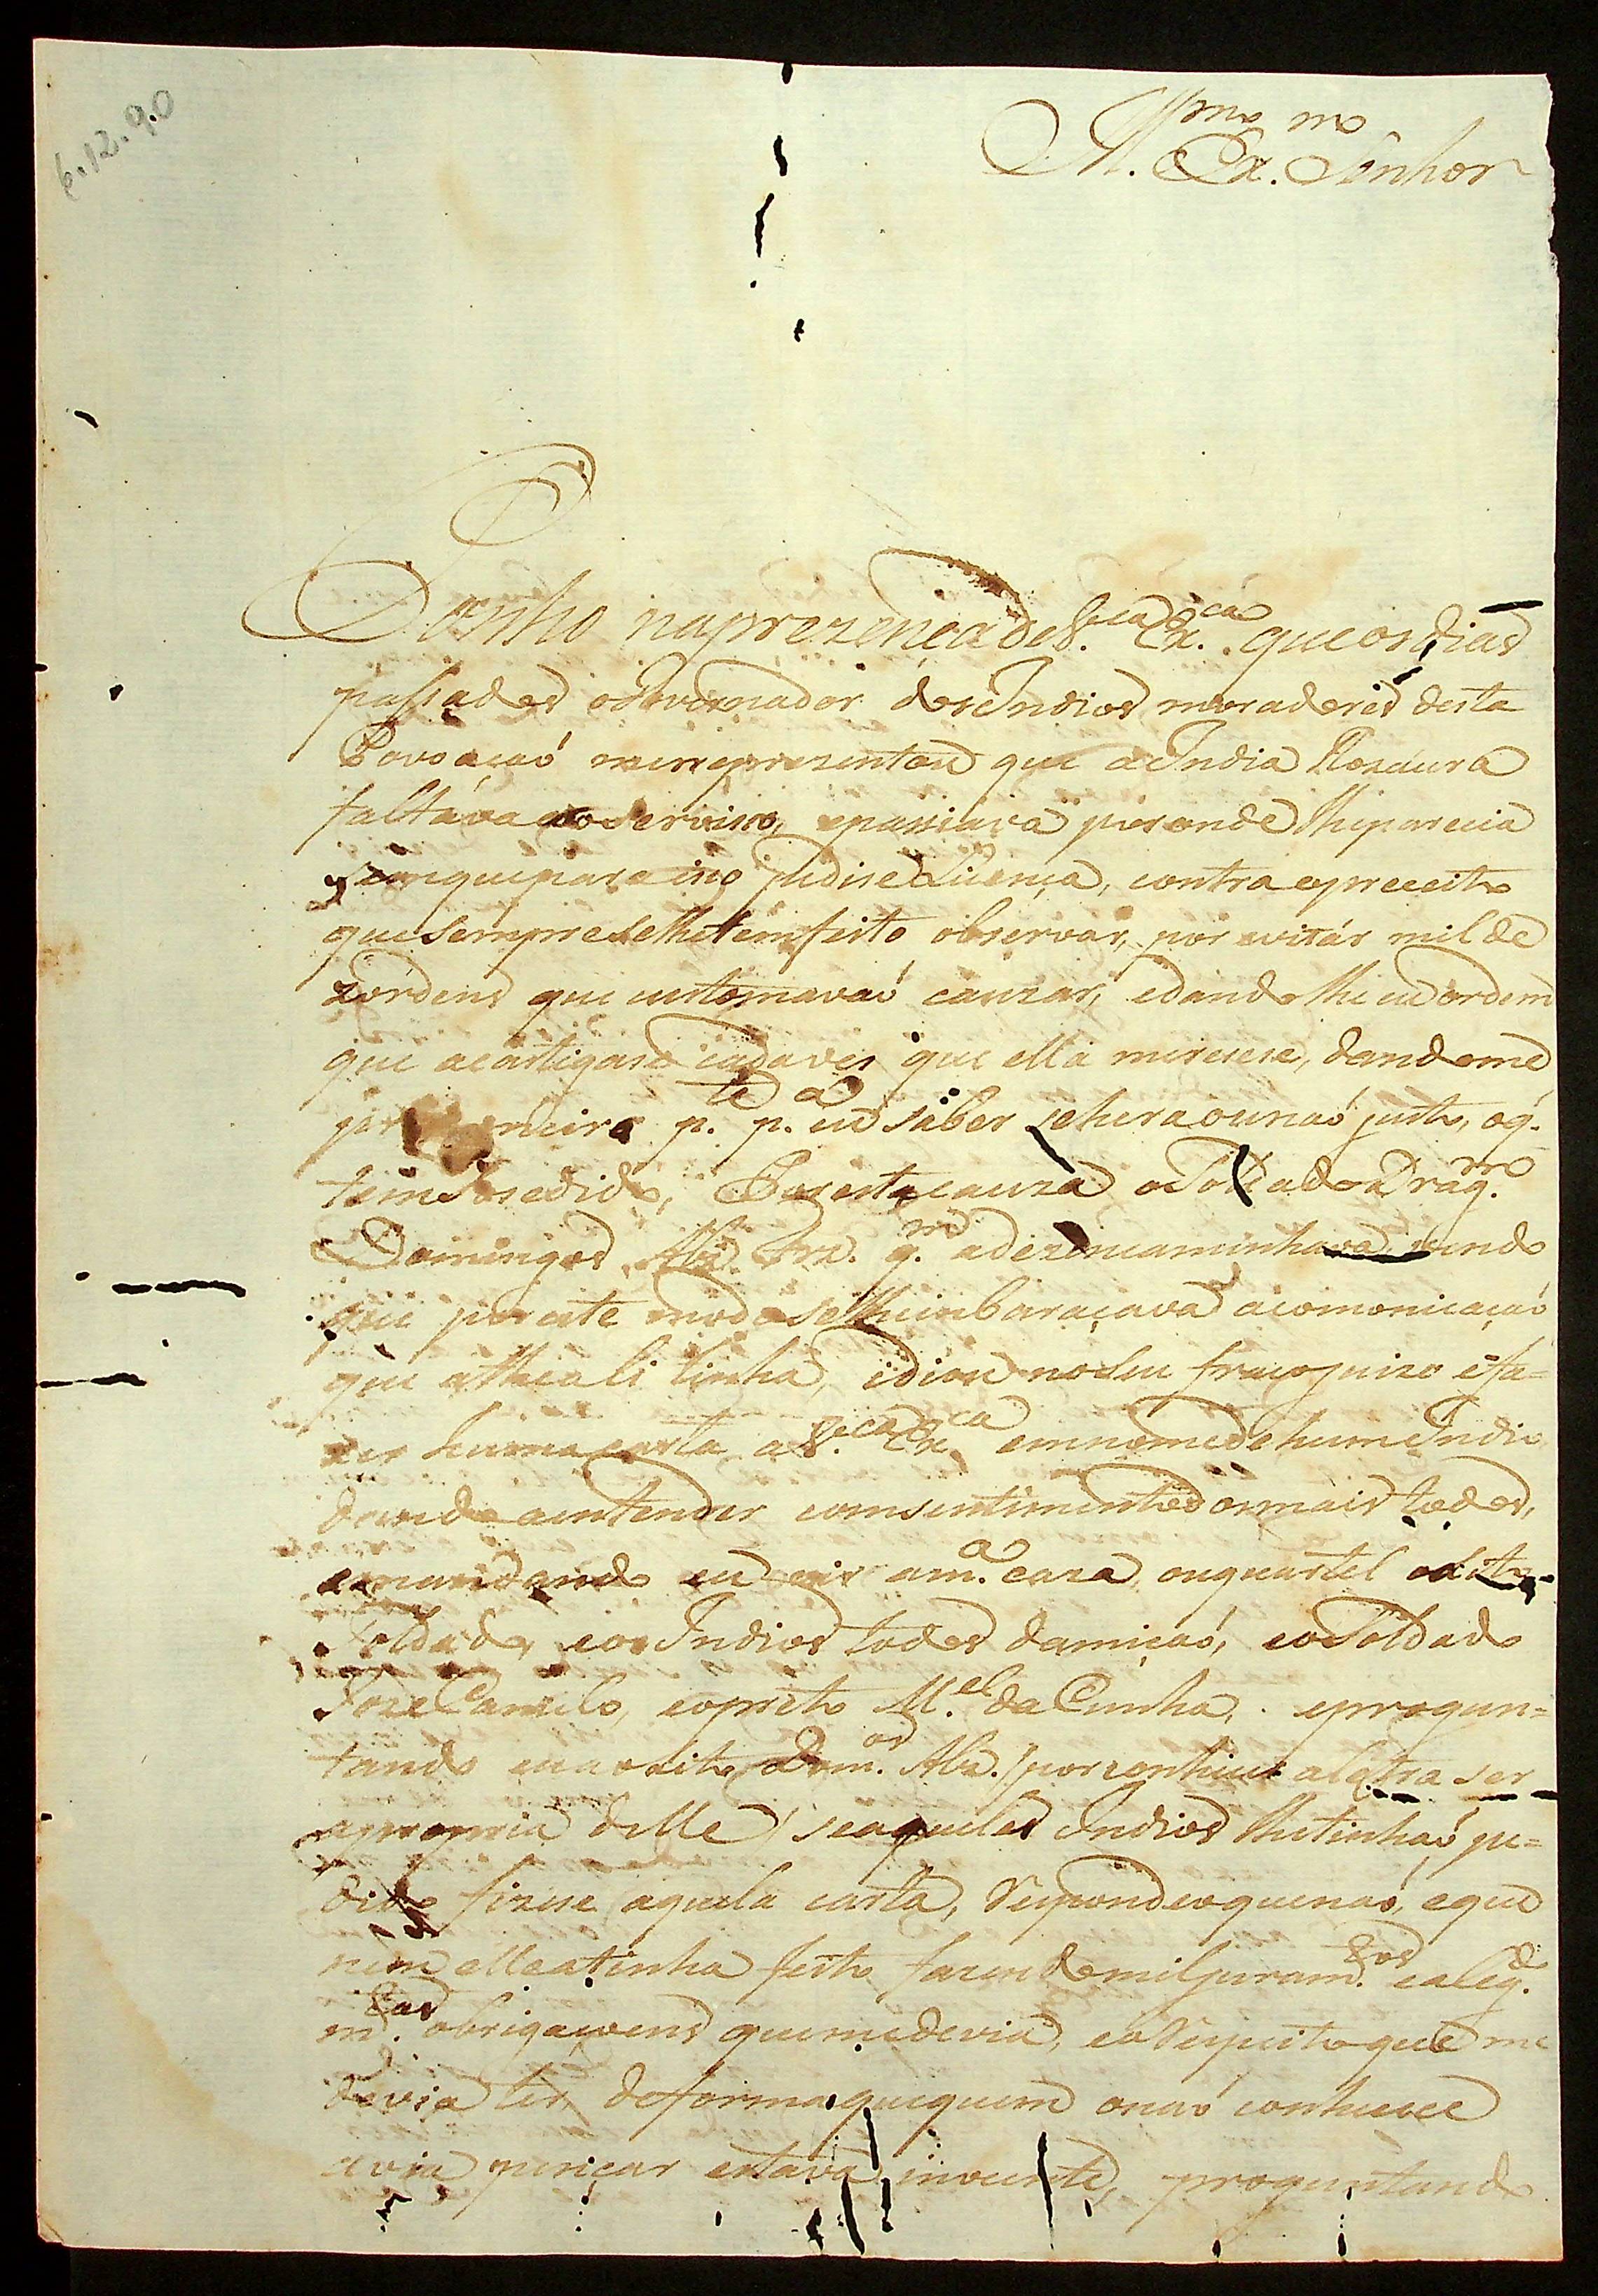 6.12.90
Ill.mo Ex.mo Senhor
Ponho na prezença de V.ca Ex.ca que os dias
passados o Governador dos Indios moradores desta
Povoaçaó me reprezentou que a India Rozaura
faltáva ao serviso, e passiava por onde lhe parecia
sem que para iso pedise Licença, contra o preceito
que sempre se lhe tem feito observar, por evitár mil de
zordens que customavaó cauzar, e dando lhe eu ordem
que a castigase cada ves que ella merecese, dandome
pr p.te p.a eu saber se hera ou naó justo, o q.
tem sosedido, Por esta cauza o Soldado Drag.
Domingos Alz. q.m a dezencaminhava, vendo
que por este modo se lhe inbaraçava a comonicaçaó
que athe ali tinha, idiou no seu fraco juizo o fa-
zer huma carta a V.ca Ex.ca em nome de hum Indio
dando a entender comsentimento dos mais todos,
e mandando eu vir a m.a caza, ou quartel o dito
Soldado, e os Indios todos da miçaó, e o Soldado
Joze Camilo, e o preto M.el da Cunha, e progun-
tando eu ao dito Dom.os Alz. /por conhecer a letra ser
a propria delle/ se aqueles Indios lhe tinhaó pe-
dido fizese aquela carta, Respondeo que naó, e que
nem elle a tinha feito fazendo mil juram.tos e aleg.do
m.tas obrigaçoens que me devia, e o Respeito que me
devia ter, de forma que quem o naó conhecece
avia pençar estava inocente, proguntando